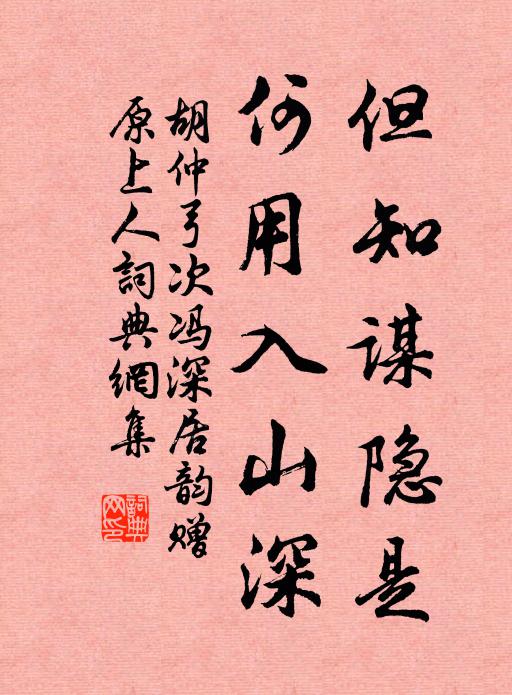 但知谋隐是
何用入山深
胡仲弓次冯深居韵赠
原上人詞典網集
詞典
网印